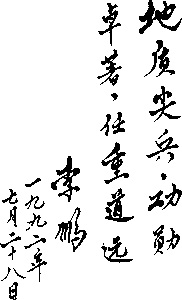 地质尖兵、功勋
卓著、任重道远
李鹏
一九九二年
七月二十八日